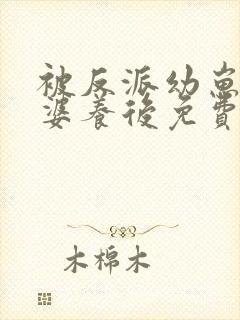 被反派幼崽
婆養後免費
木棉木